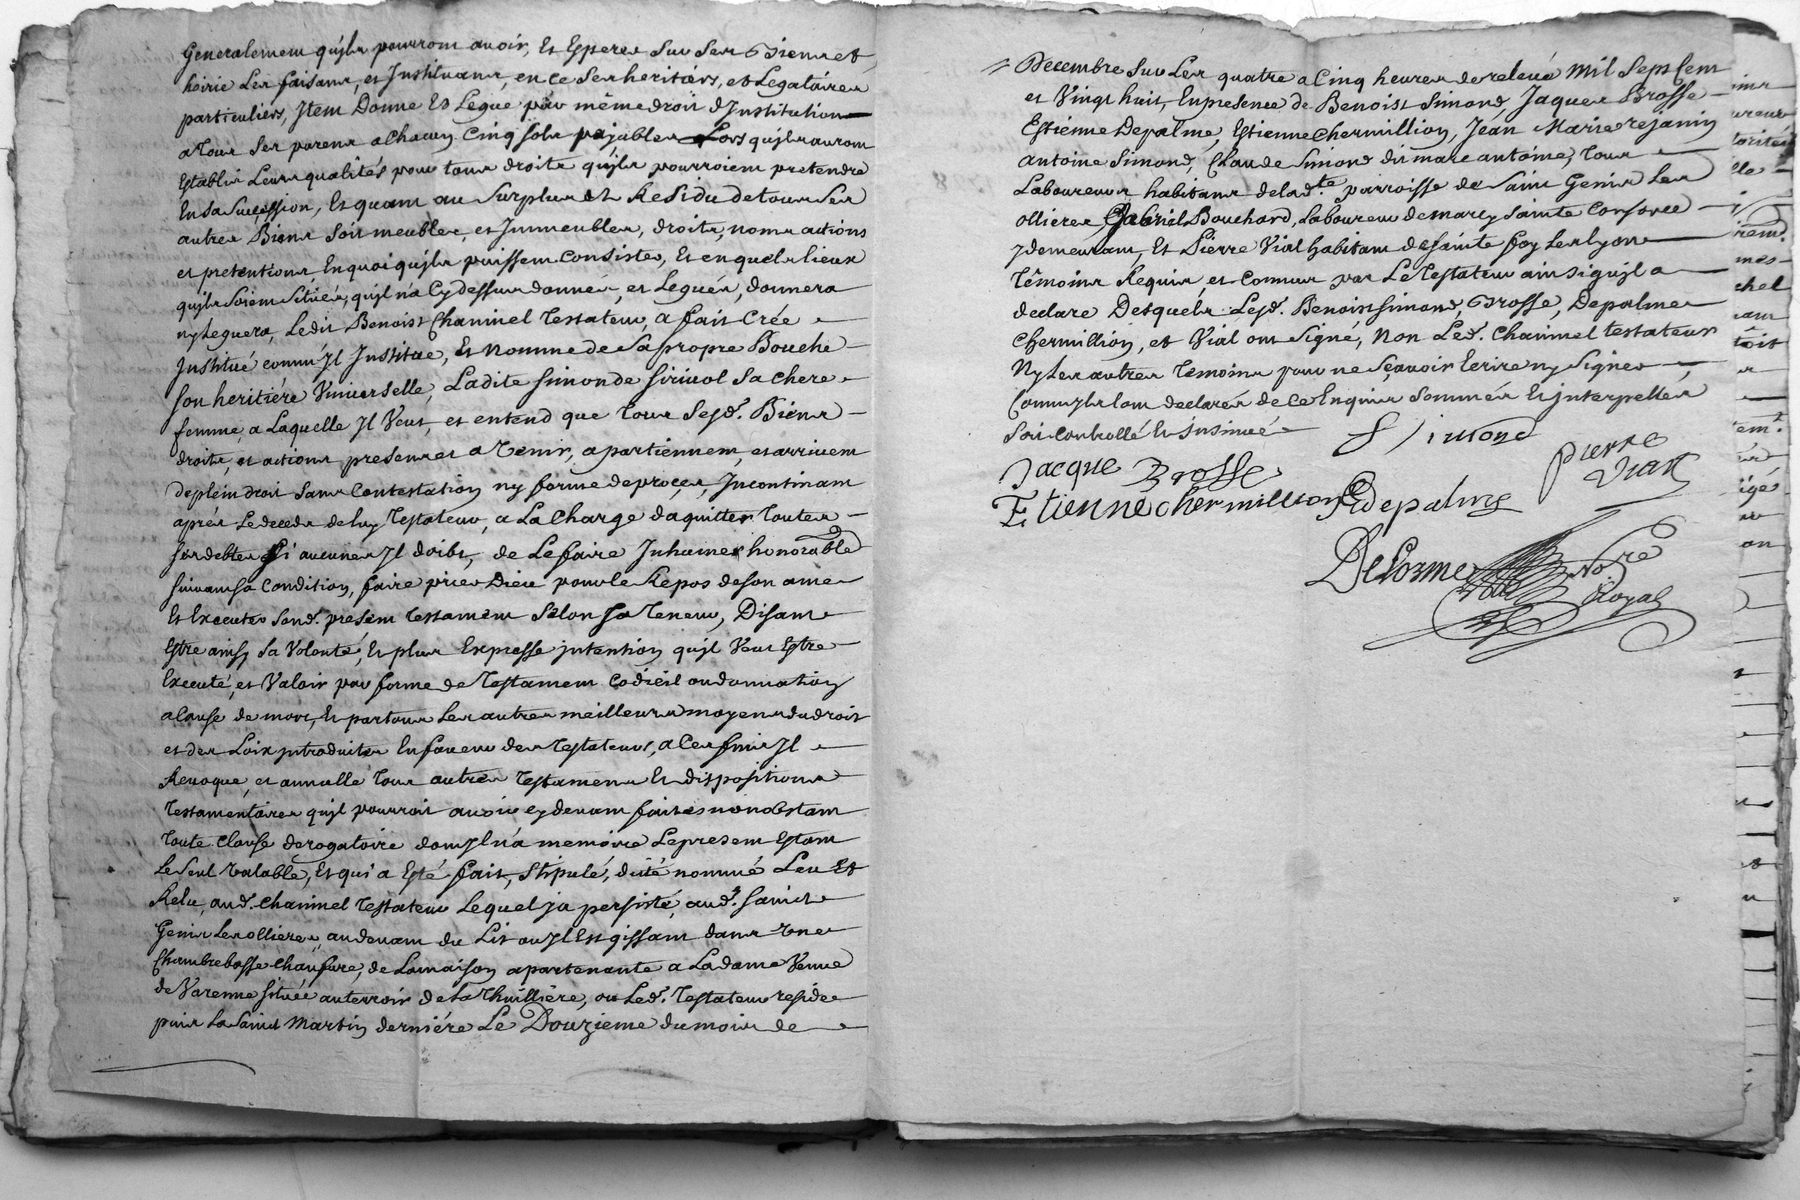 Generalement qu'jls pourront avoir, Et Esperer sur ses Biens et
hoirie Les faisant, et Jnstituant, en ce ses heritiers, et Legataires
particuliers, Jtem Donne Et Legue par même droit d'Jnstitution
a tous ses parens a chacun cinq sols payables Lors qu'jls auront
Establis Leurs qualités pour tous droits qu'jls pourroient pretendre
En sa Succession, Et quant au Surplus Et Residu de tous ses
autres Biens soit meubles, et Jmmeubles, droits, noms actions
et pretentions En quoi qu'jls puissent consister, Et en quels lieux
qu'jls soient situés, qu'jl n'a Cy dessus donnés, et Legués, donnera
ny Leguera, Ledit Benoist Chaninel Testateur, a fait Crée
Jnstitué comm'Jl Jnstitue, Et Nomme de sa propre Bouche
son heritiere Vniverselle, Ladite Simonde Sirivol sa chere
femme, a Laquelle Jl Veut, et entend que tous sesd. Biens
droits, et actions presents et a Venir, apartiennent, et arrivent
de plein droit sans Contestation ny forme de procés, Jncontinant
aprés Le deceds de luy Testateur, a La Charge d'aquitter toutes
ses debtes si aucunes Jl doibt, de Le faire Jnhumer honorable
suivant sa Condition, faire prier Dieu pour le Repos de son ame
Et Executer sond. present Testament Selon sa Teneur, Disant
Estre ainsy sa Volonté, Et plus Expresse jntention qu'jl Veut Estre
Executé, et Valoir par forme de Testament Codicil ou donnation
a Cause de mort, Et par tous Les autres meilleurs moyens du droit
et des Loix jntroduites En faveur des Testateurs, a Ces fins Jl
Revoque, et annulle tous autres Testamens Et dispositions
Testamentaires qu'jl pourroit avoir cy devant faites nonobstant
toute Clause derogatoire dont Jl n'a memoire Le present Estant
Le seul Valable, Et qui a Esté fait, stipulé, dicté nommé Leu Et
Releu, aud. Chaninel Testateur Lequel ja persisté, aud. Sainct
Genis Les ollieres, au devant du Lit ou Jl Est gissant dans Vne
Chambre basse chaufure, de La maison apartenante a La dame Veuve
de Varenne située au terroir de La Thuilliére, ou Led. Testateur reside
puis La Saint Martin derniére Le Douzieme du mois de
Decembre sur Les quatre a Cinq heures de relevé Mil Sept Cent
et Vingt huit, En presence de Benoist Simond, Jaques Brosse
Estienne Depalme, Estienne Chermillion, Jean Marie rejanin
Antoine Simond, Claude Simond dit marc antoine, tous
Laboureurs habitans de lad.te parroisse de Saint Genis Les
ollieres, Gabriel Bouchard, Laboureur de marcy Sainte Consorce
y demeurant, Et Pierre Vial habitant de Sainte foy Les lyon
Témoins Requis, et Connus par Le Testateur ainsi qu'jl a
declaré Desquels Lesd. Benoist Simond, Brosse, Depalme
Chermillion, et Vial ont Signé, Non Led. Chaninel testateur
Ny Les autres Temoins pour ne Sçavoir Ecrire ny Signer
Comm'jls l'ont declarés de ce Enquis Sommés Et jnterpellés
Soit Controllé Et jnsinué
S Simond
Jacque Brosse
Pierre
Vial
Etienne chermillion
E depalme
Delorme
No.re
Royal